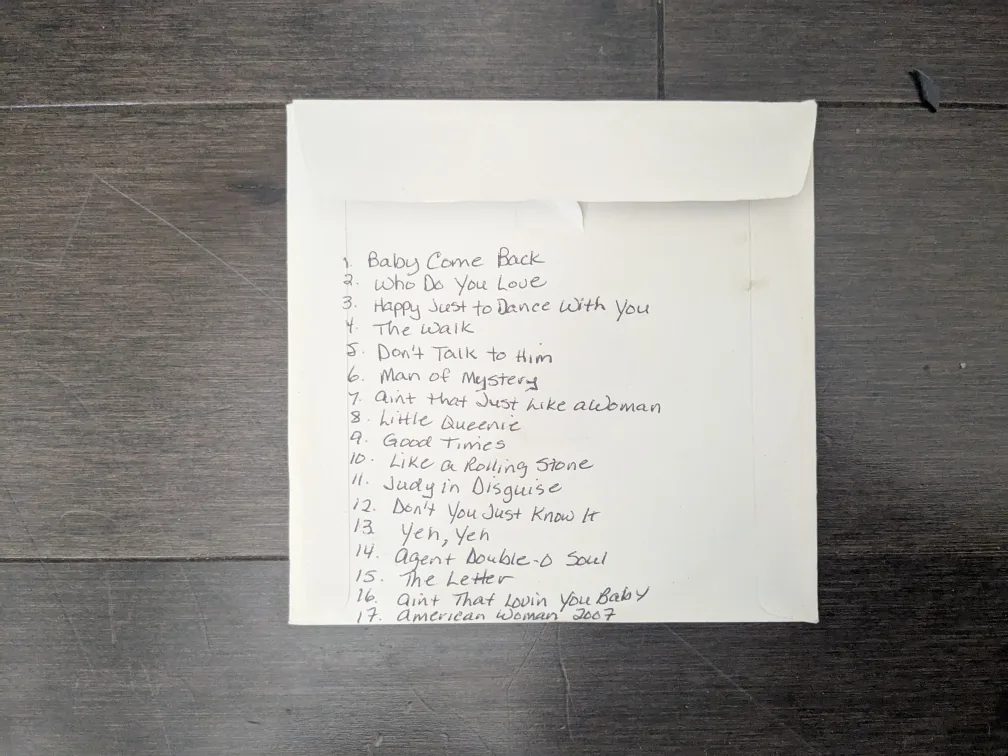 1. Baby Come Back
2. Who Do You Love
3. Happy Just to Dance With You
4. The Walk
5. Don't Talk to Him
6. Man of Mystery
7. Aint that Just Like a Woman
8. Little Queenie
9. Good Times
10. Like a Rolling Stone
11. Judy in Disguise
12. Don't You Just Know It
13. Yeh, Yeh
14. Agent Double-O Soul
15. The Letter
16. Aint That Lovin You Baby
17. American Woman 2007